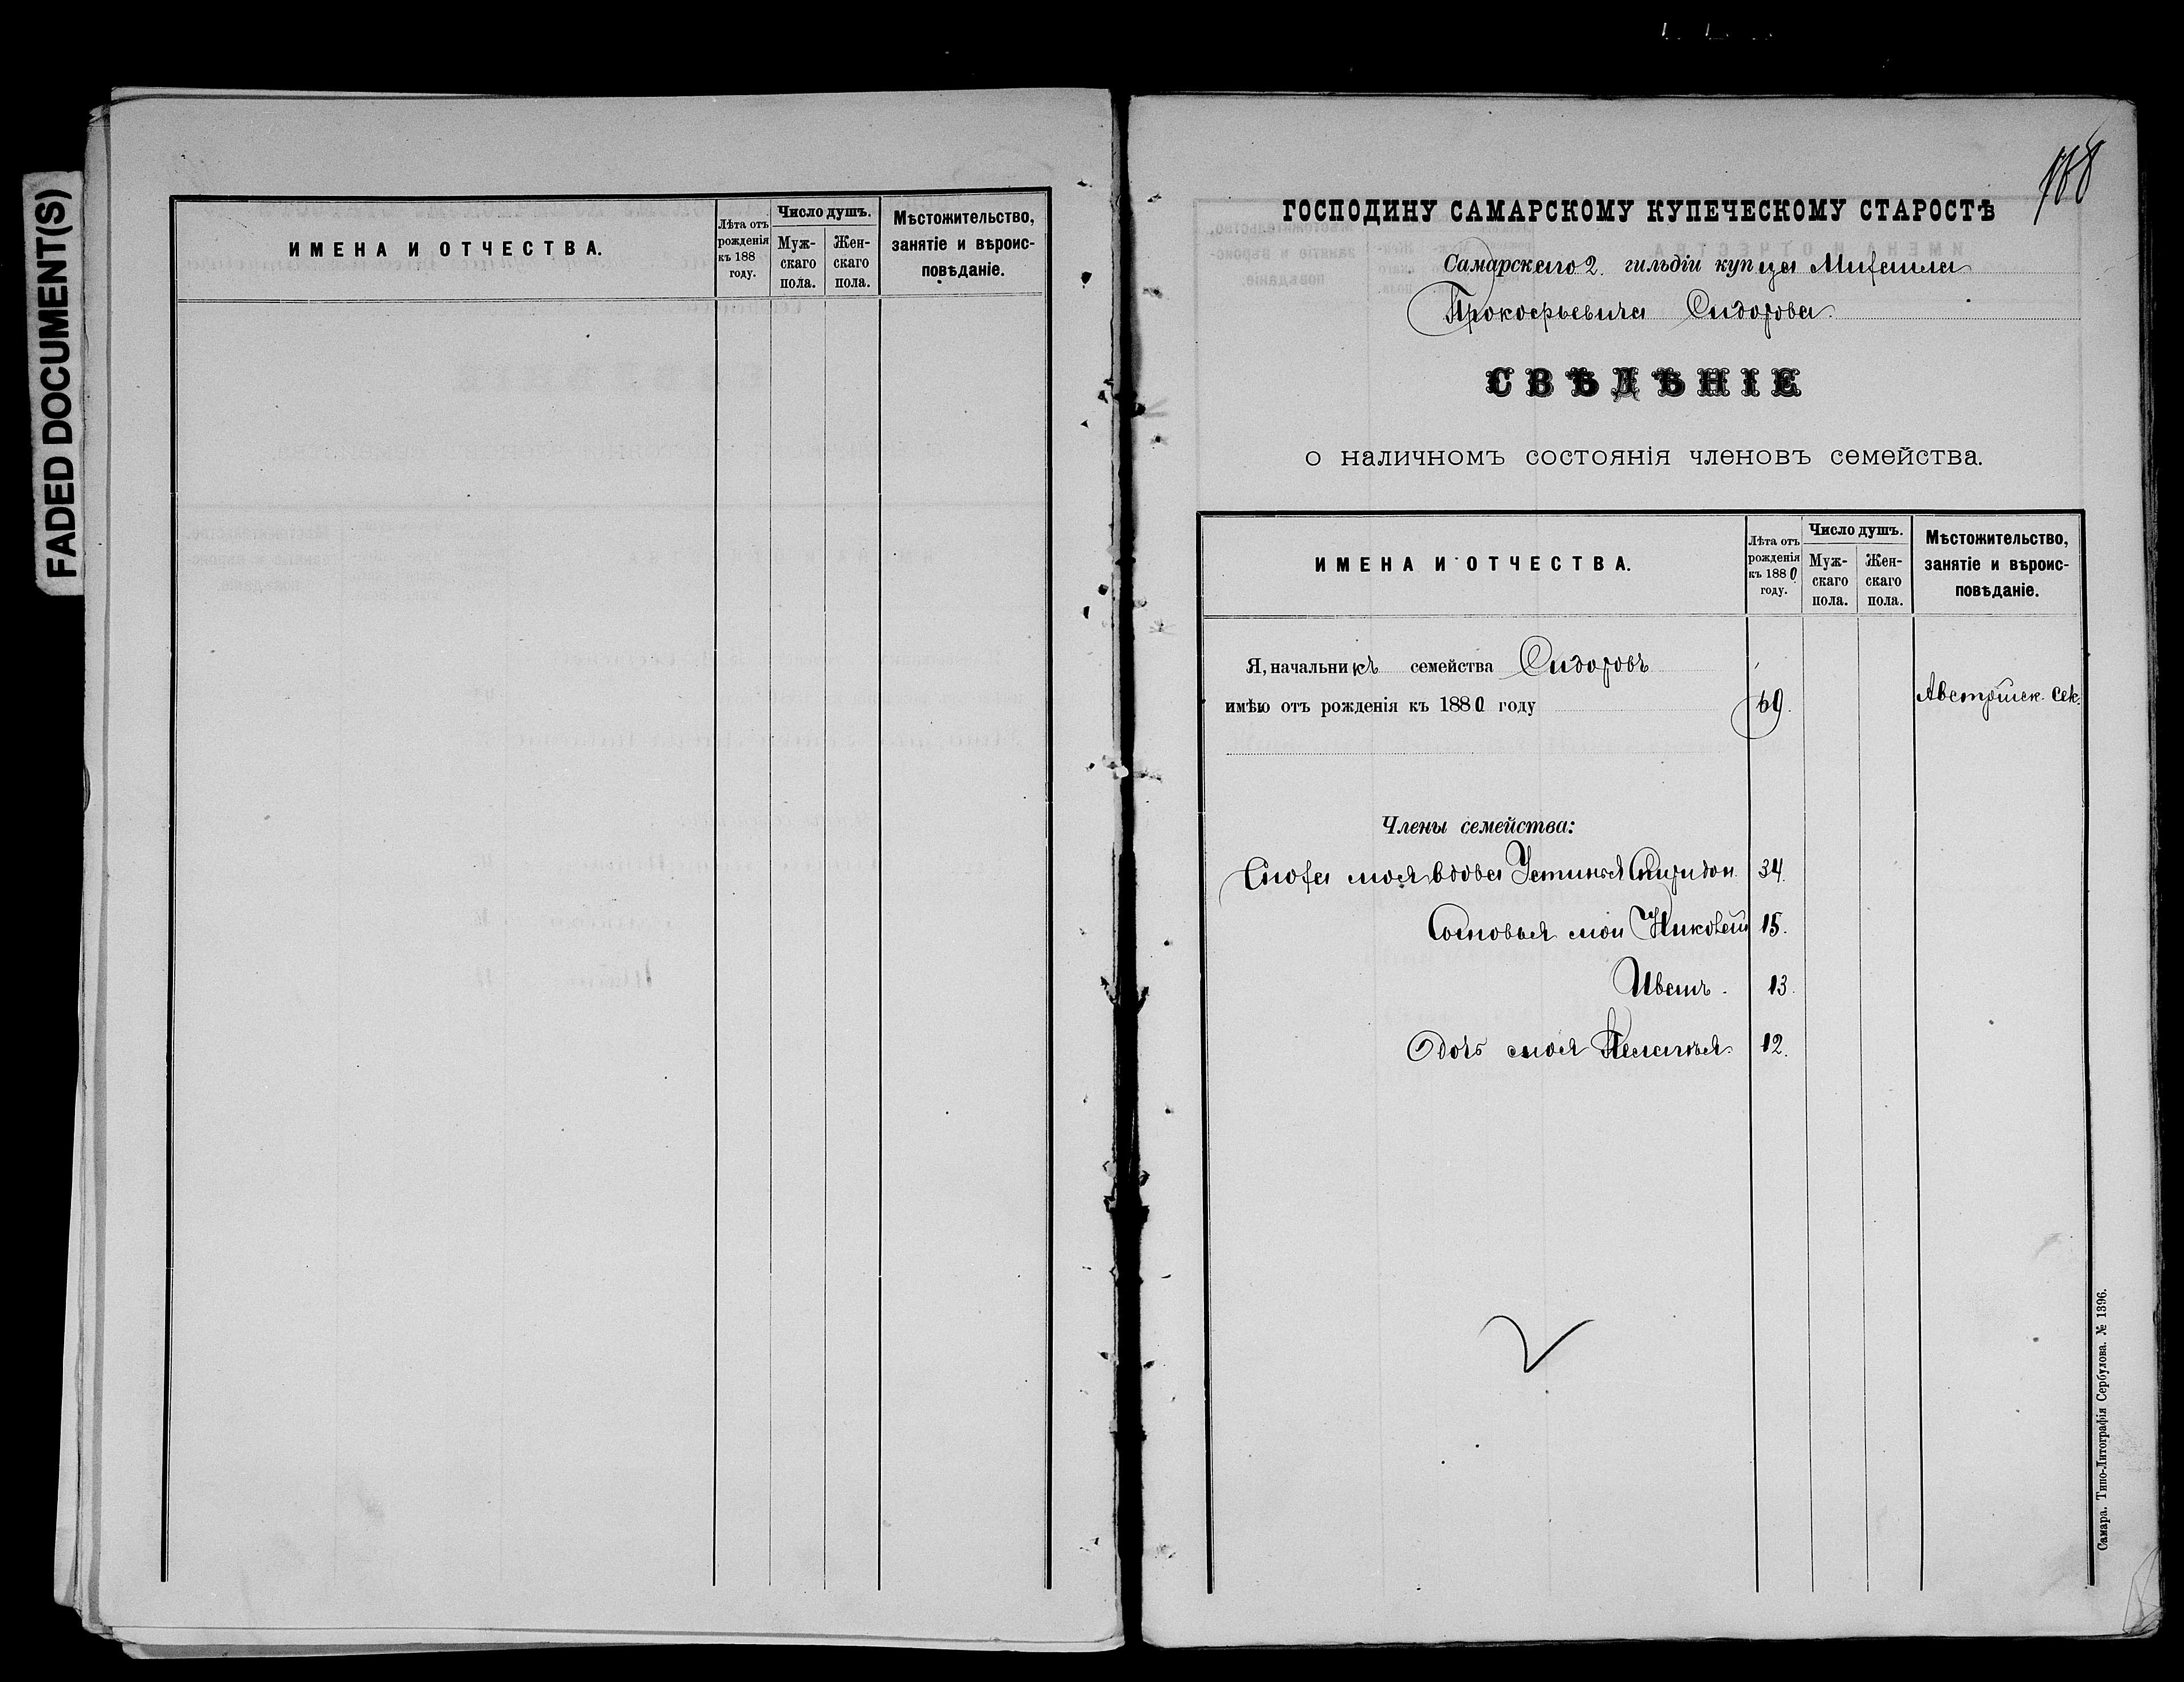 FADED DOCUMENT(S)
ИМЕНА И ОТЧЕСТВА.
Лѣта отъ рожденія къ 188 году.
Число душъ.
Мужскаго пола.
Женскаго пола.
Мѣстожительство, занятіе и вѣроисповѣданіе.
188
ГОСПОДИНУ САМАРСКОМУ КУПЕЧЕСКОМУ СТАРОСТѢ
Самарскаго 2. гильдіи купца Михаила
Прокофьевича Сидорова.
СВѢДѢНІЕ
о наличномъ состоянія членовъ семейства.
ИМЕНА И ОТЧЕСТВА.
Лѣта отъ рожденія къ 1880 году.
Число душъ.
Мужскаго пола.
Женскаго пола.
Мѣстожительство, занятіе и вѣроисповѣданіе.
Я, начальникъ семейства Сидоровъ
имѣю отъ рожденія къ 1880 году 69. Австрійск. сек.
Члены семейства:
Сноха моя вдова Устинья Спиридон. 34.
Сыновья мои 15.
Иванъ. 13.
Дочь моя Пелагья. 12.
Самара. Типо-Литографія Сербулова. № 1396.